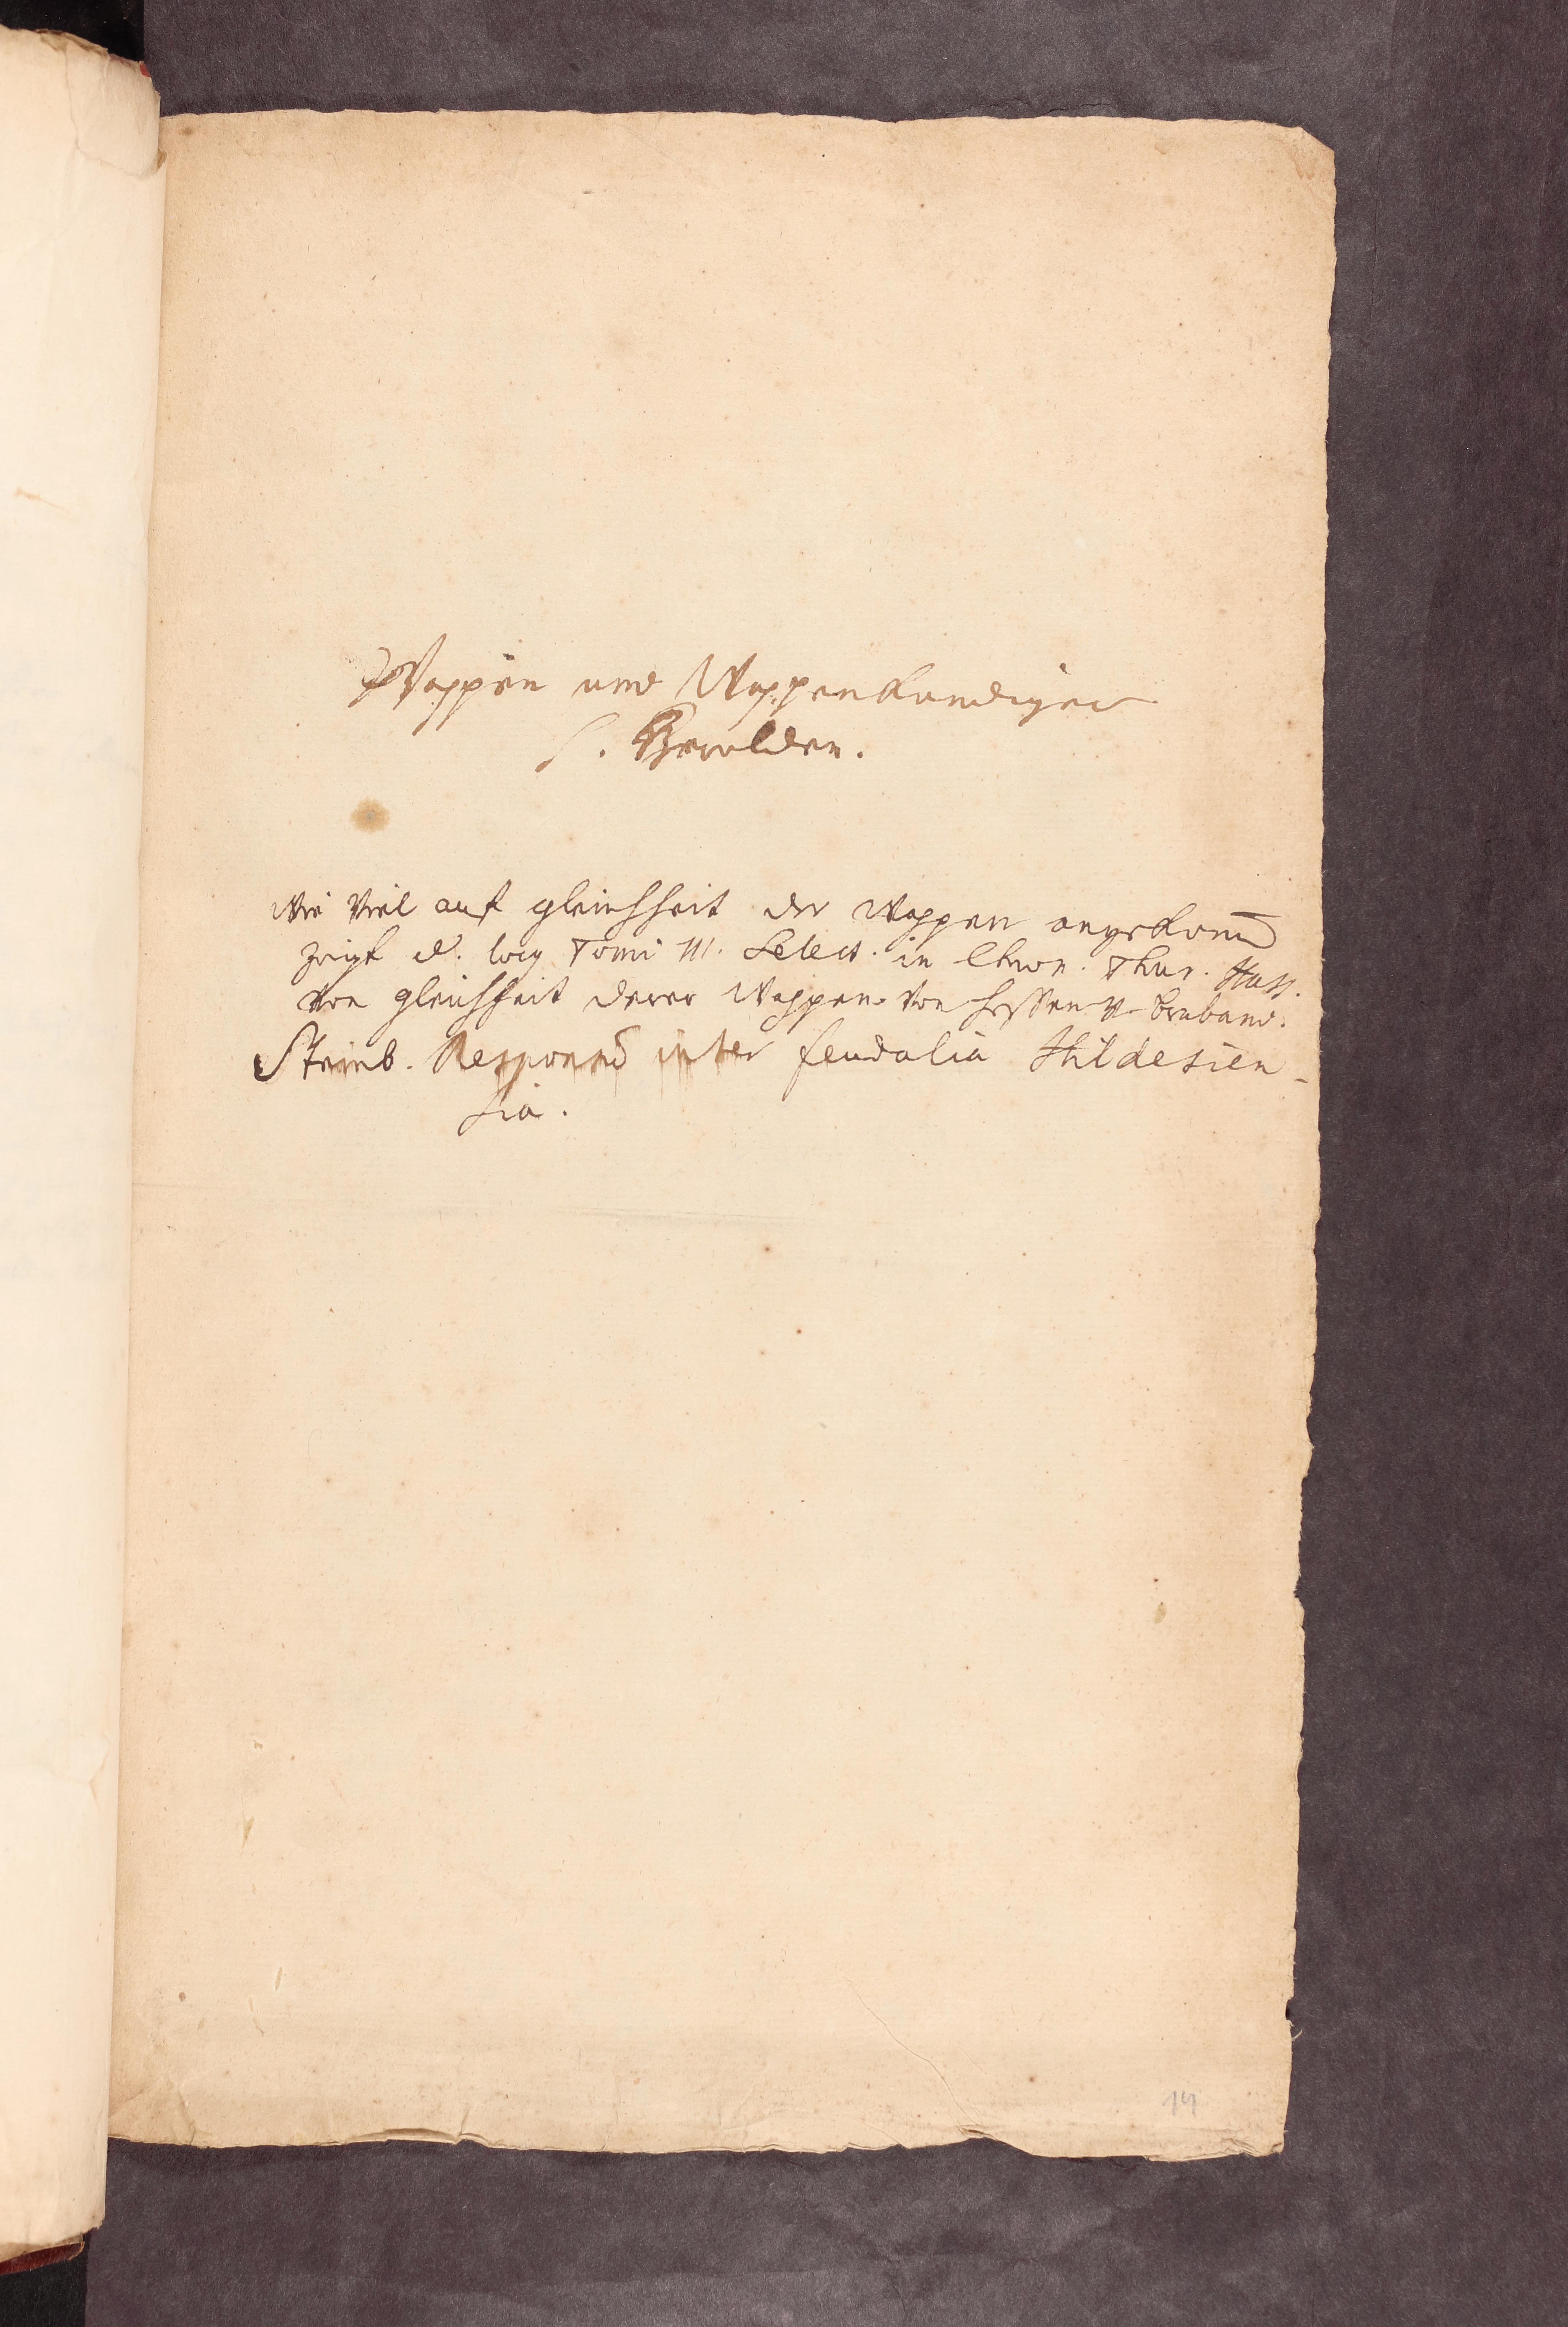 Wappen und Wappenkundiger
s. Herolden.
Wie viel auf gleichheit der Wappen angekom̄
zeigt d. Tomi III. Select. in Chron. Thur. Hass.
von gleichheit derer Wappen von Hessen u. braband.
Steinb. Respons inter feudalia Hildesien-
sia.
14